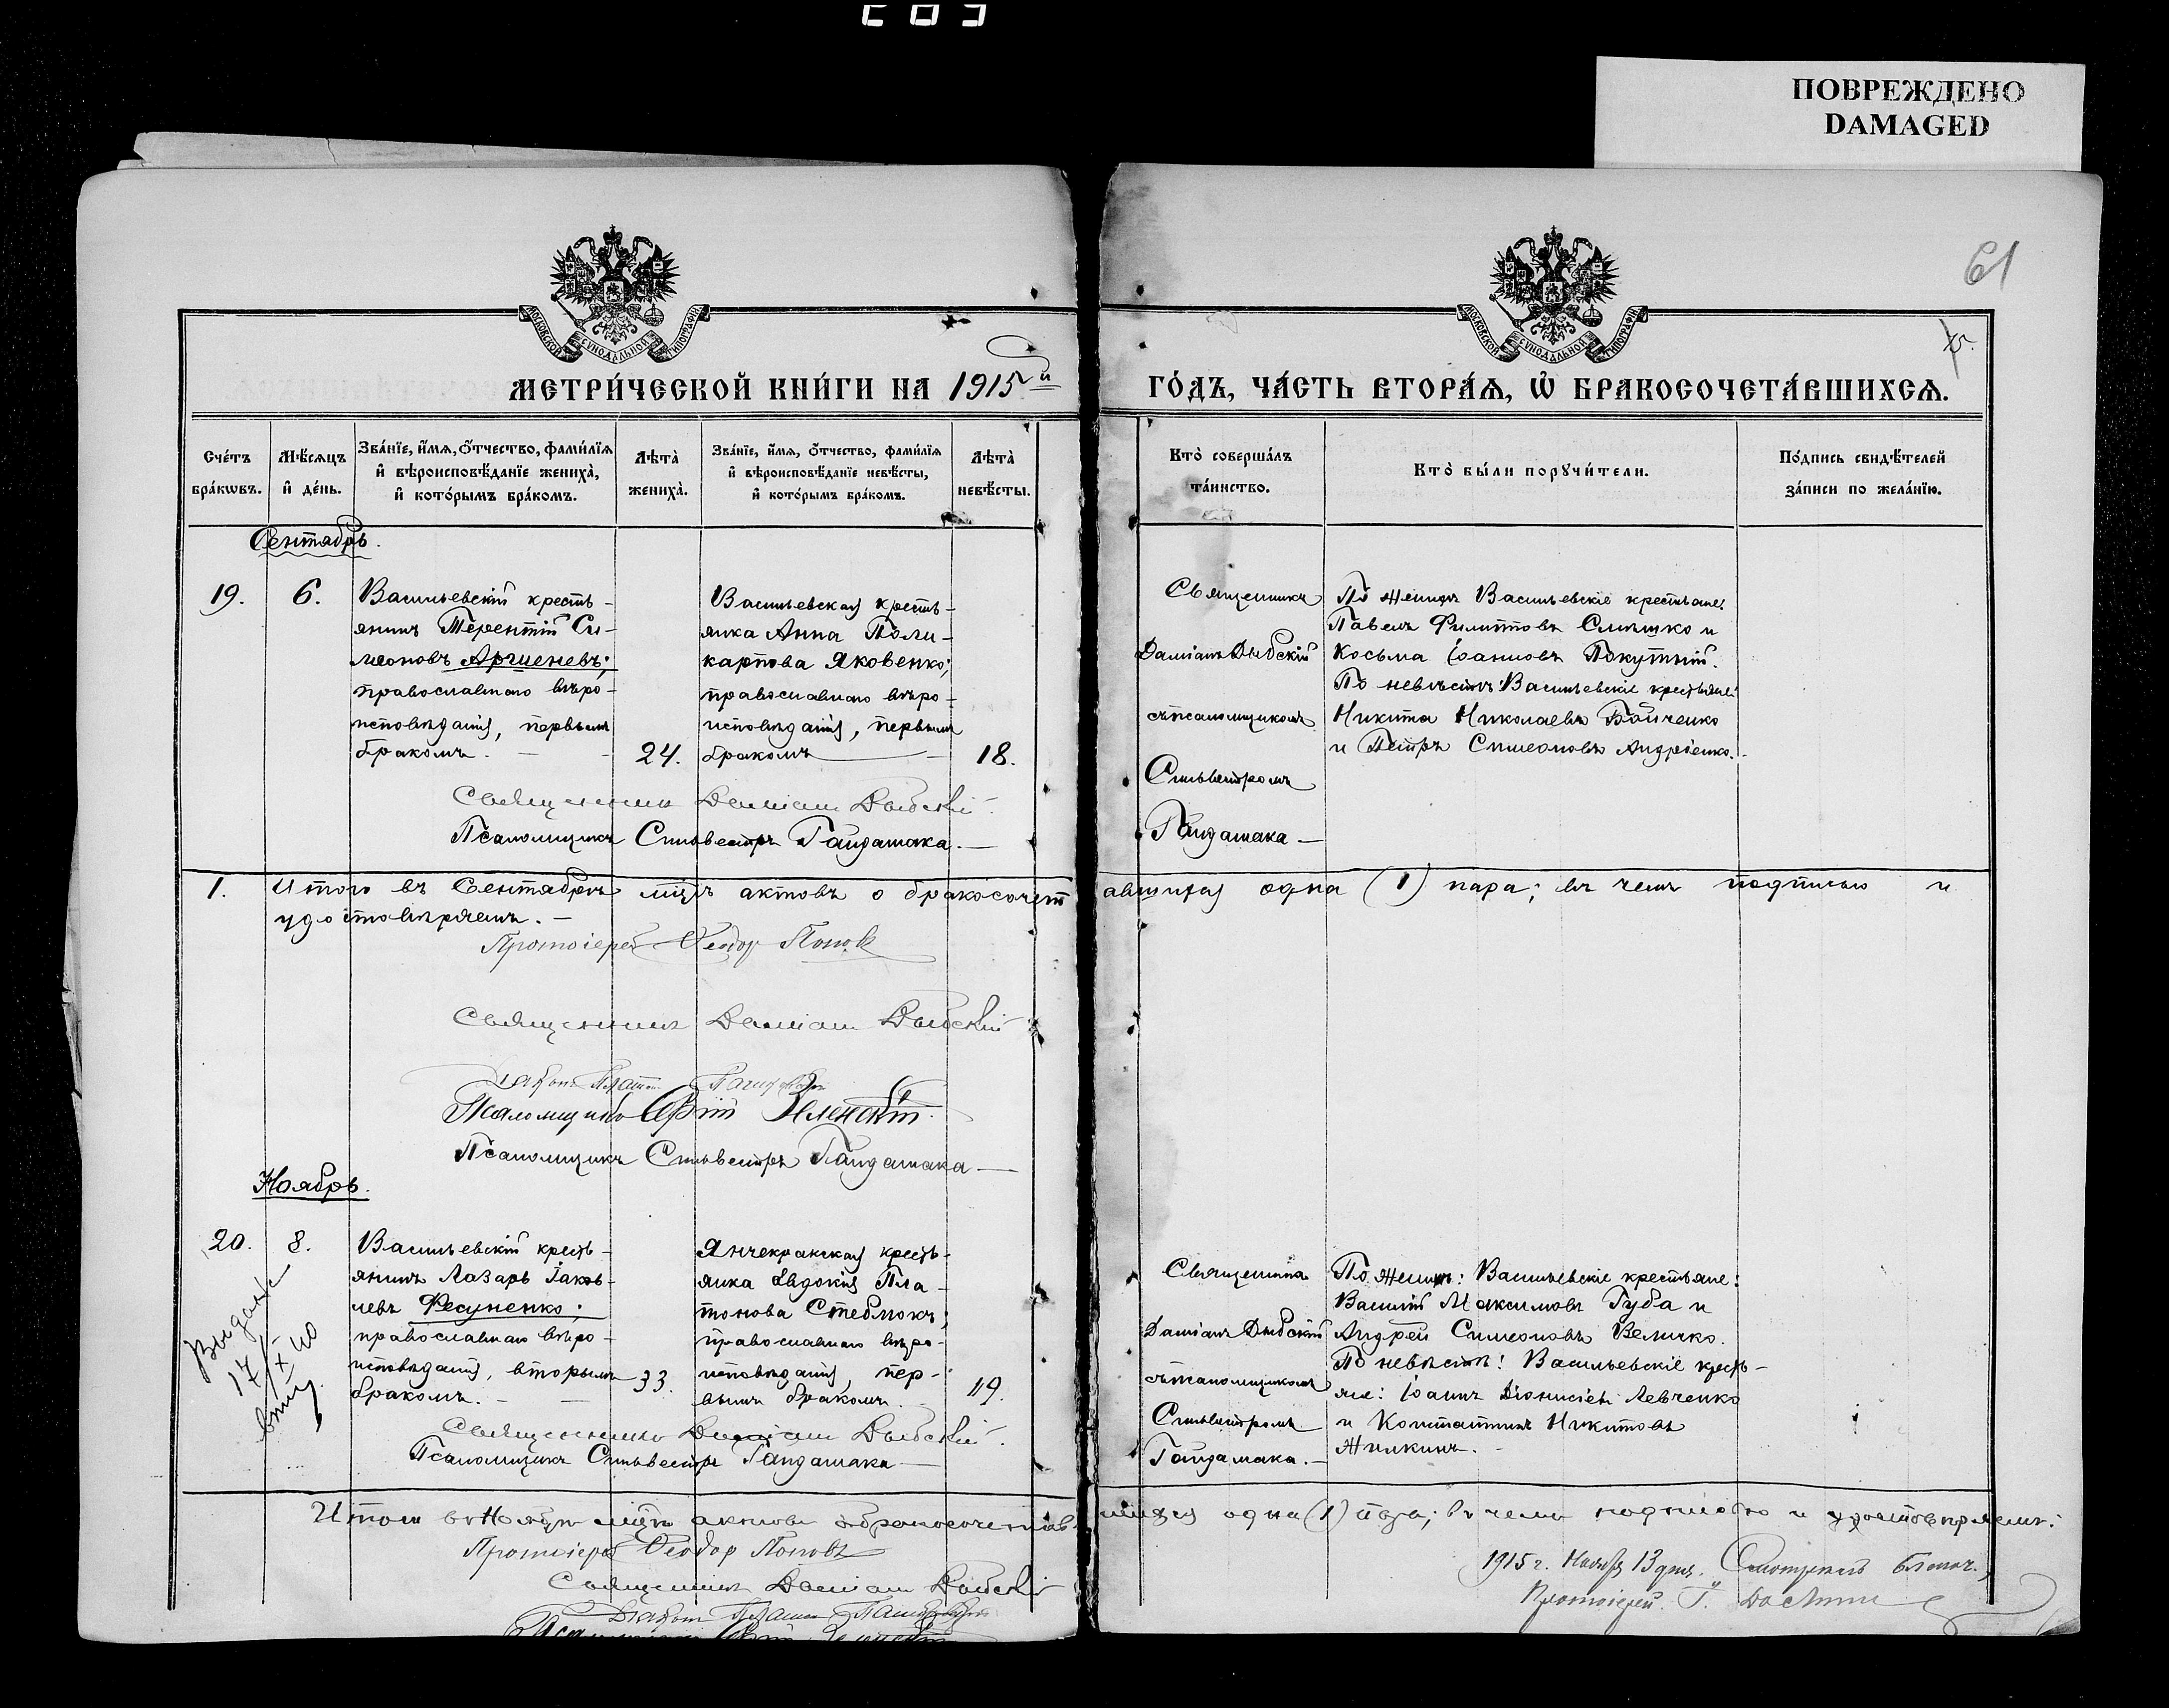 ПОВРЕЖДЕНО
DAMAGED
61
15.
МОСКОВСКОЙ СУНОДАЛЬНОЙ ТИПОГРАФІИ
МОСКОВСКОЙ СУНОДАЛЬНОЙ ТИПОГРАФІИ
МЕТРИ́ЧЕСКОЙ КНИ́ГИ НА 1915й
ГО́ДЪ, ЧА́СТЬ ВТОРА́Ѧ, Ѽ БРАКОСОЧЕТА́ВШИХСѦ.
Сче́тъ
бра́кѡвъ.
Мѣ́сяцъ
и҆ де́нь.
Зва́нїе, и҆́мя, ѻ҆́тчество, фамѝлїя
и҆ вѣроисповѣ́данїе жениха̀,
и҆ кото́рымъ бра́комъ.
Лѣта̀
жениха̀.
Зва́нїе, и҆́мя, ѻ҆́тчество, фамѝлїя
и҆ вѣроисповѣ́данїе невѣ́сты,
и҆ кото́рымъ бра́комъ.
Лѣта̀
невѣ́сты.
Кто̀ соверша́лъ
та́инство.
Кто̀ бы́ли порꙋчи́тели.
По́дпись свидѣ́телей
за́писи по жела́нїю.
Сентябрь.
19.
6.
Васильевскій кресть-
янинъ Терентій Си-
меоновъ Аргиеневъ;
православнаго вѣро-
исповѣданія, первымъ
бракомъ. —
24.
Васильевская кресть-
янка Анна Поли-
карпова Яковенко;
православнаго вѣро-
исповѣданія, первымъ
бракомъ —
18.
Священникъ
Даміанъ Дыбскій
съ псаломщикомъ
Сильвестромъ
Гайдамака —
По женихѣ Васильевскіе крестьяне:
Павелъ Филипповъ Слишко и
Косьма Іоанновъ Покутній.
По невѣстѣ: Васильевскіе крестьяне:
Никита Николаевъ Бойченко
и Петръ Симеоновъ Андріенко.
Священникъ Даміанъ Дыбскій.
Псаломщикъ Сильвестръ Гайдамака. —
1.
Итого въ Сентябрѣ мцѣ актовъ о бракосочетавшихся одна (1) пара; въ чемъ подписью и
удостовѣряемъ. —
Протоіерей Ѳеодор Попов
Священникъ Даміанъ Дыбскій
Псаломщикъ
Псаломщикъ Сильвестръ Гайдамака —
Ноябрь.
20.
8.
Васильевскій кресть-
янинъ Лазарь Іаков-
левъ Фесуненко;
православнаго вѣро-
исповѣданія, вторымъ
бракомъ. —
33.
Янчекракская кресть-
янка Евдокія Пла-
тонова Стеблюкъ;
православнаго вѣро-
исповѣданія, пер-
вымъ бракомъ.
19.
Священникъ
Даміанъ Дыбскій
съ псаломщикомъ
Сильвестромъ
Гайдамака. —
По женихѣ: Васильевскіе крестьяне:
Василій Максимовъ Губа и
Андрей Симеоновъ Величко.
По невѣстѣ: Васильевскіе кресть-
яне: Іоаннъ Діонисіевъ Левченко
и Константинъ Никитовъ
Жилкинъ. —
17/IX 40
Священникъ Даміанъ Дыбскій.
Псаломщикъ Сильвестръ Гайдамака —
Итого въ Ноябрѣ мцѣ актовъ о бракосочетавшихся одна (1) пара; въ чемъ подписью и удостовѣряемъ:
Протоіерей Ѳеодор Поповъ
Священникъ Даміанъ Дыбскій
1915 г. Ноября 13 дня.
Протоіерей